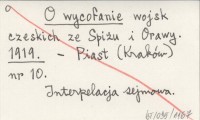 O wycofanie wojsk
czeskich ze Spiżu i Orawy.
1919. - Piast (Kraków)
nr 10.
Interpelacja sejmowa.